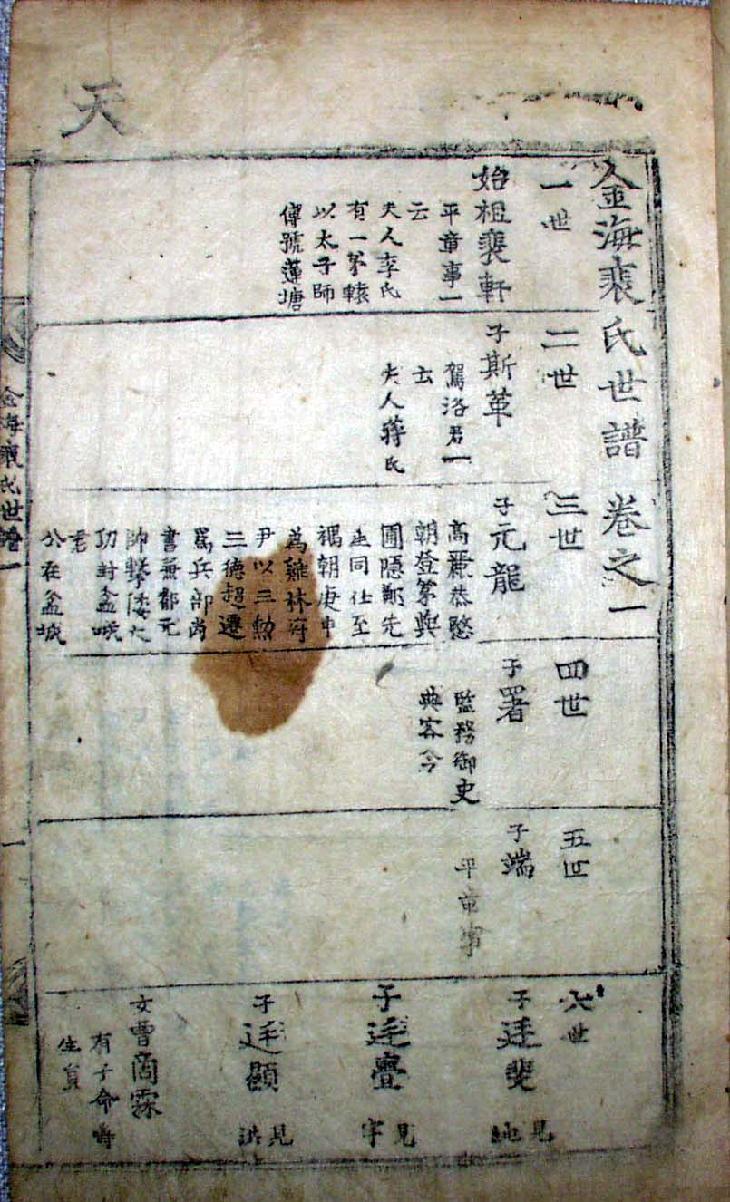 天
金海裴氏世譜 卷之一
一世
始祖裴軒
平章事一
云
夫人李氏
有一弟轅
以太子師
傅號蓮塘
二世
子斯革
駕洛君一
云
夫人蔣氏
三世
子元龍
高麗恭愍
朝登第與
圃隱鄭先
生同仕至
禑朝庚申
爲雞林府
尹以三勳
三德超遷
爲兵部尚
書兼都元
帥擊倭大
功封盆城
君
公在盆城
四世
子署
監務御史
典客令
五世
子端
平章事
六世
子廷斐
見
子廷疊
見字
子廷顯
見洪
女曹商霖
有子命
生員
金海裴氏世譜一
一